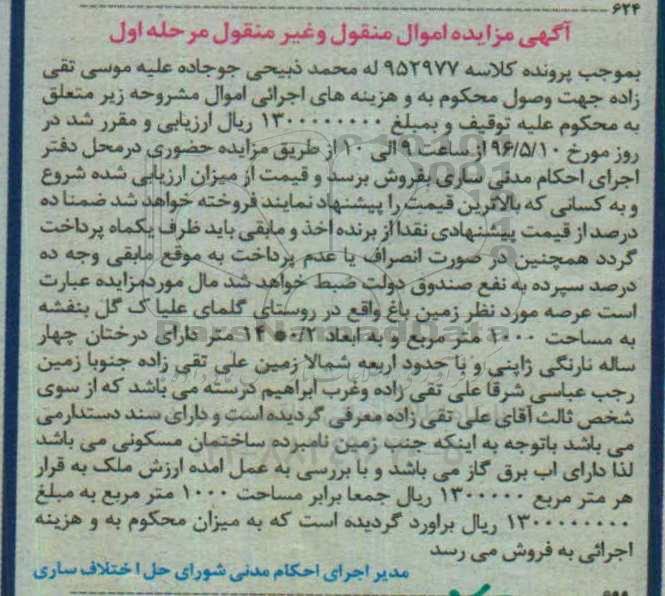 ۶۲۴
آگهی مزایده اموال منقول وغیر منقول مرحله اول
بموجب پرونده کلاسه ۹۵۲۹۷۷ له محمد ذبیحی جوجاده علیه موسی تقی
زاده جهت وصول محکوم به و هزینه های اجرائی اموال مشروحه زیر متعلق
به محکوم علیه توقیف و بمبلغ ۱۳۰۰۰۰۰۰۰۰ ریال ارزیابی و مقرر شد در
روز مورخ ۹۶/۵/۱۰ از ساعت ۹ الی ۱۰ از طریق مزایده حضوری درمحل دفتر
اجرای احکام مدنی ساری بفروش برسد و قیمت از میزان ارزیابی شده شروع
و به کسانی که بالاترین قیمت را پیشنهاد نمایند فروخته خواهد شد ضمنا ده
درصد از قیمت پیشنهادی نقدا از برنده اخذ و مابقی باید ظرف یکماه پرداخت
گردد همچنین در صورت انصراف یا عدم پرداخت به موقع مابقی وجه ده
درصد سپرده به نفع صندوق دولت ضبط خواهد شد مال موردمزایده عبارت
است عرصه مورد نظر زمین باغ واقع در روستای گلمای علیا ک گل بنفشه
به مساحت ۱۰۰۰ متر مربع و به ابعاد متر دارای درختان چهار
ساله نارنگی ژاپنی و با حدود اربعه شمالا زمین علی تقی زاده جنوبا زمین
رجب عباسی شرقا علی تقی زاده وغرب ابراهیم درسته می باشد که از سوی
شخص ثالث آقای علی تقی زاده معرفی گردیده است و دارای سند دستدارمی
می باشد باتوجه به اینکه جنب زمین نامبرده ساختمان مسکونی می باشد
لذا دارای اب برق گاز می باشد و با بررسی به عمل امده ارزش ملک به قرار
هر متر مربع ۱۳۰۰۰۰۰ ریال جمعا برابر مساحت ۱۰۰۰ متر مربع به مبلغ
۱۳۰۰۰۰۰۰۰۰ ریال براورد گردیده است که به میزان محکوم به و هزینه
اجرائی به فروش می رسد
مدیر اجرای احکام مدنی شورای حل اختلاف ساری
ParsNamadData